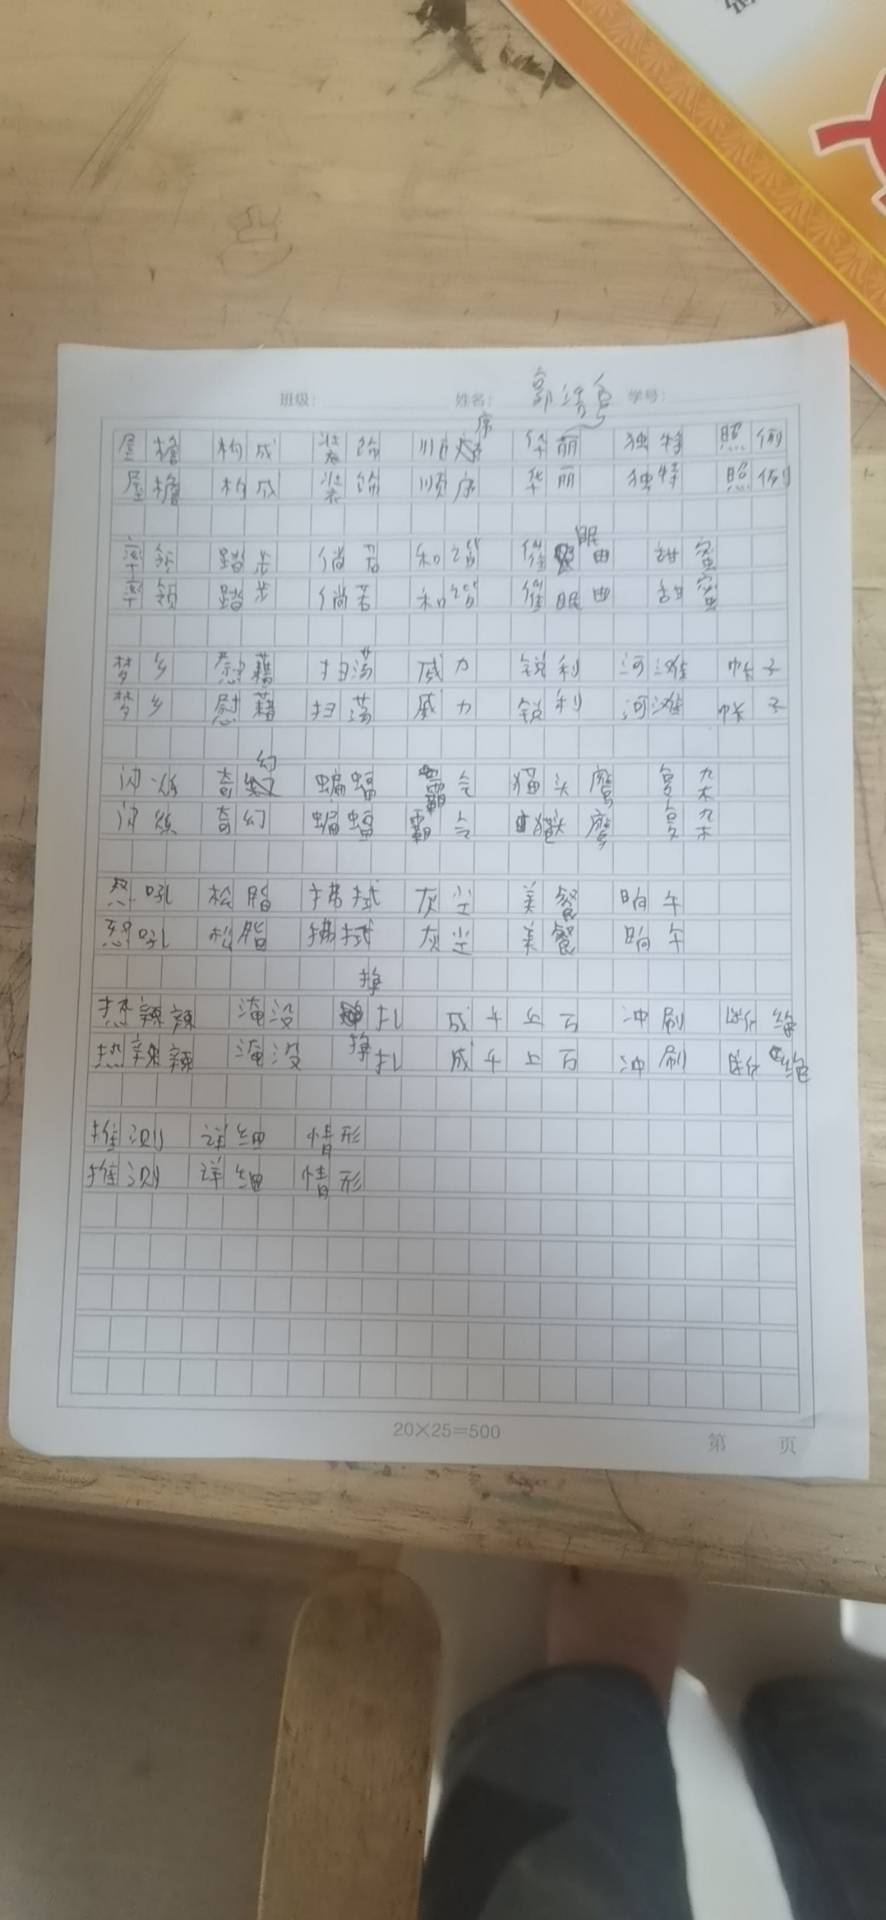 班级： 姓名： 学号：
屋檐 构成 装饰 顺序 华丽 独特 照例
屋檐 构成 装饰 顺序 华丽 独特 照例
率领 踏步 倘若 和谐 催眠曲 甜蜜
率领 踏步 倘若 和谐 催眠曲 甜蜜
梦乡 慰藉 扫荡 威力 锐利 河滩 帐子
梦乡 慰藉 扫荡 威力 锐利 河滩 帐子
闪烁 奇幻 蝙蝠 霸气 猫头鹰
闪烁 奇幻 蝙蝠 霸气 猫头鹰
怒吼 松脂 拂拭 灰尘 美餐 晌午
怒吼 松脂 拂拭 灰尘 美餐 晌午
热辣辣 淹没 挣扎 成千上万 冲刷 断绝
热辣辣 淹没 挣扎 成千上万 冲刷 断绝
推测 详细 情形
推测 详细 情形
20×25=500
第 页